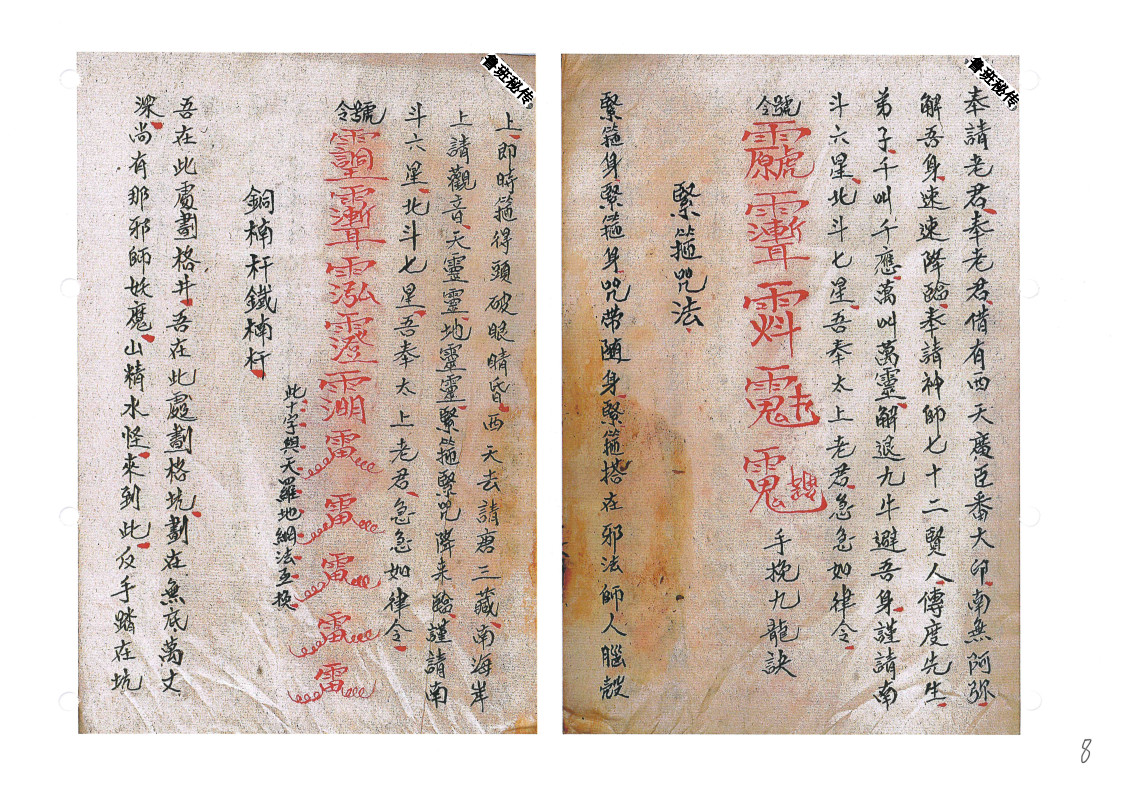 魯班秘传
奉請老君奉老君借有西天廣臣番大印南無阿弥
解吾身速速降臨奉請神師七十二賢人傳度先生
弟子千叫千應萬叫萬靈解退九牛避吾身謹請南
斗六星北斗七星吾奉太上老君急急如律令
號令
手挽九龍訣
緊箍咒法
緊箍身緊箍身咒带随身緊箍搭在邪法師人腦殼
魯班秘传
上即時箍得頭破眼睛昏西天去請唐三藏南海岸
上請觀音天靈靈地靈靈緊箍緊咒降来臨謹請南
斗六星北斗七星吾奉太上老君急急如律令
號令
雷雷雷雷雷
此十字與天羅地網法互换
銅楠杆鐵楠杆
吾在此處劃格井吾在此處劃格坑劃在無底萬丈
深尚有那邪師妖魔山精水怪來到此反手踏在坑
8